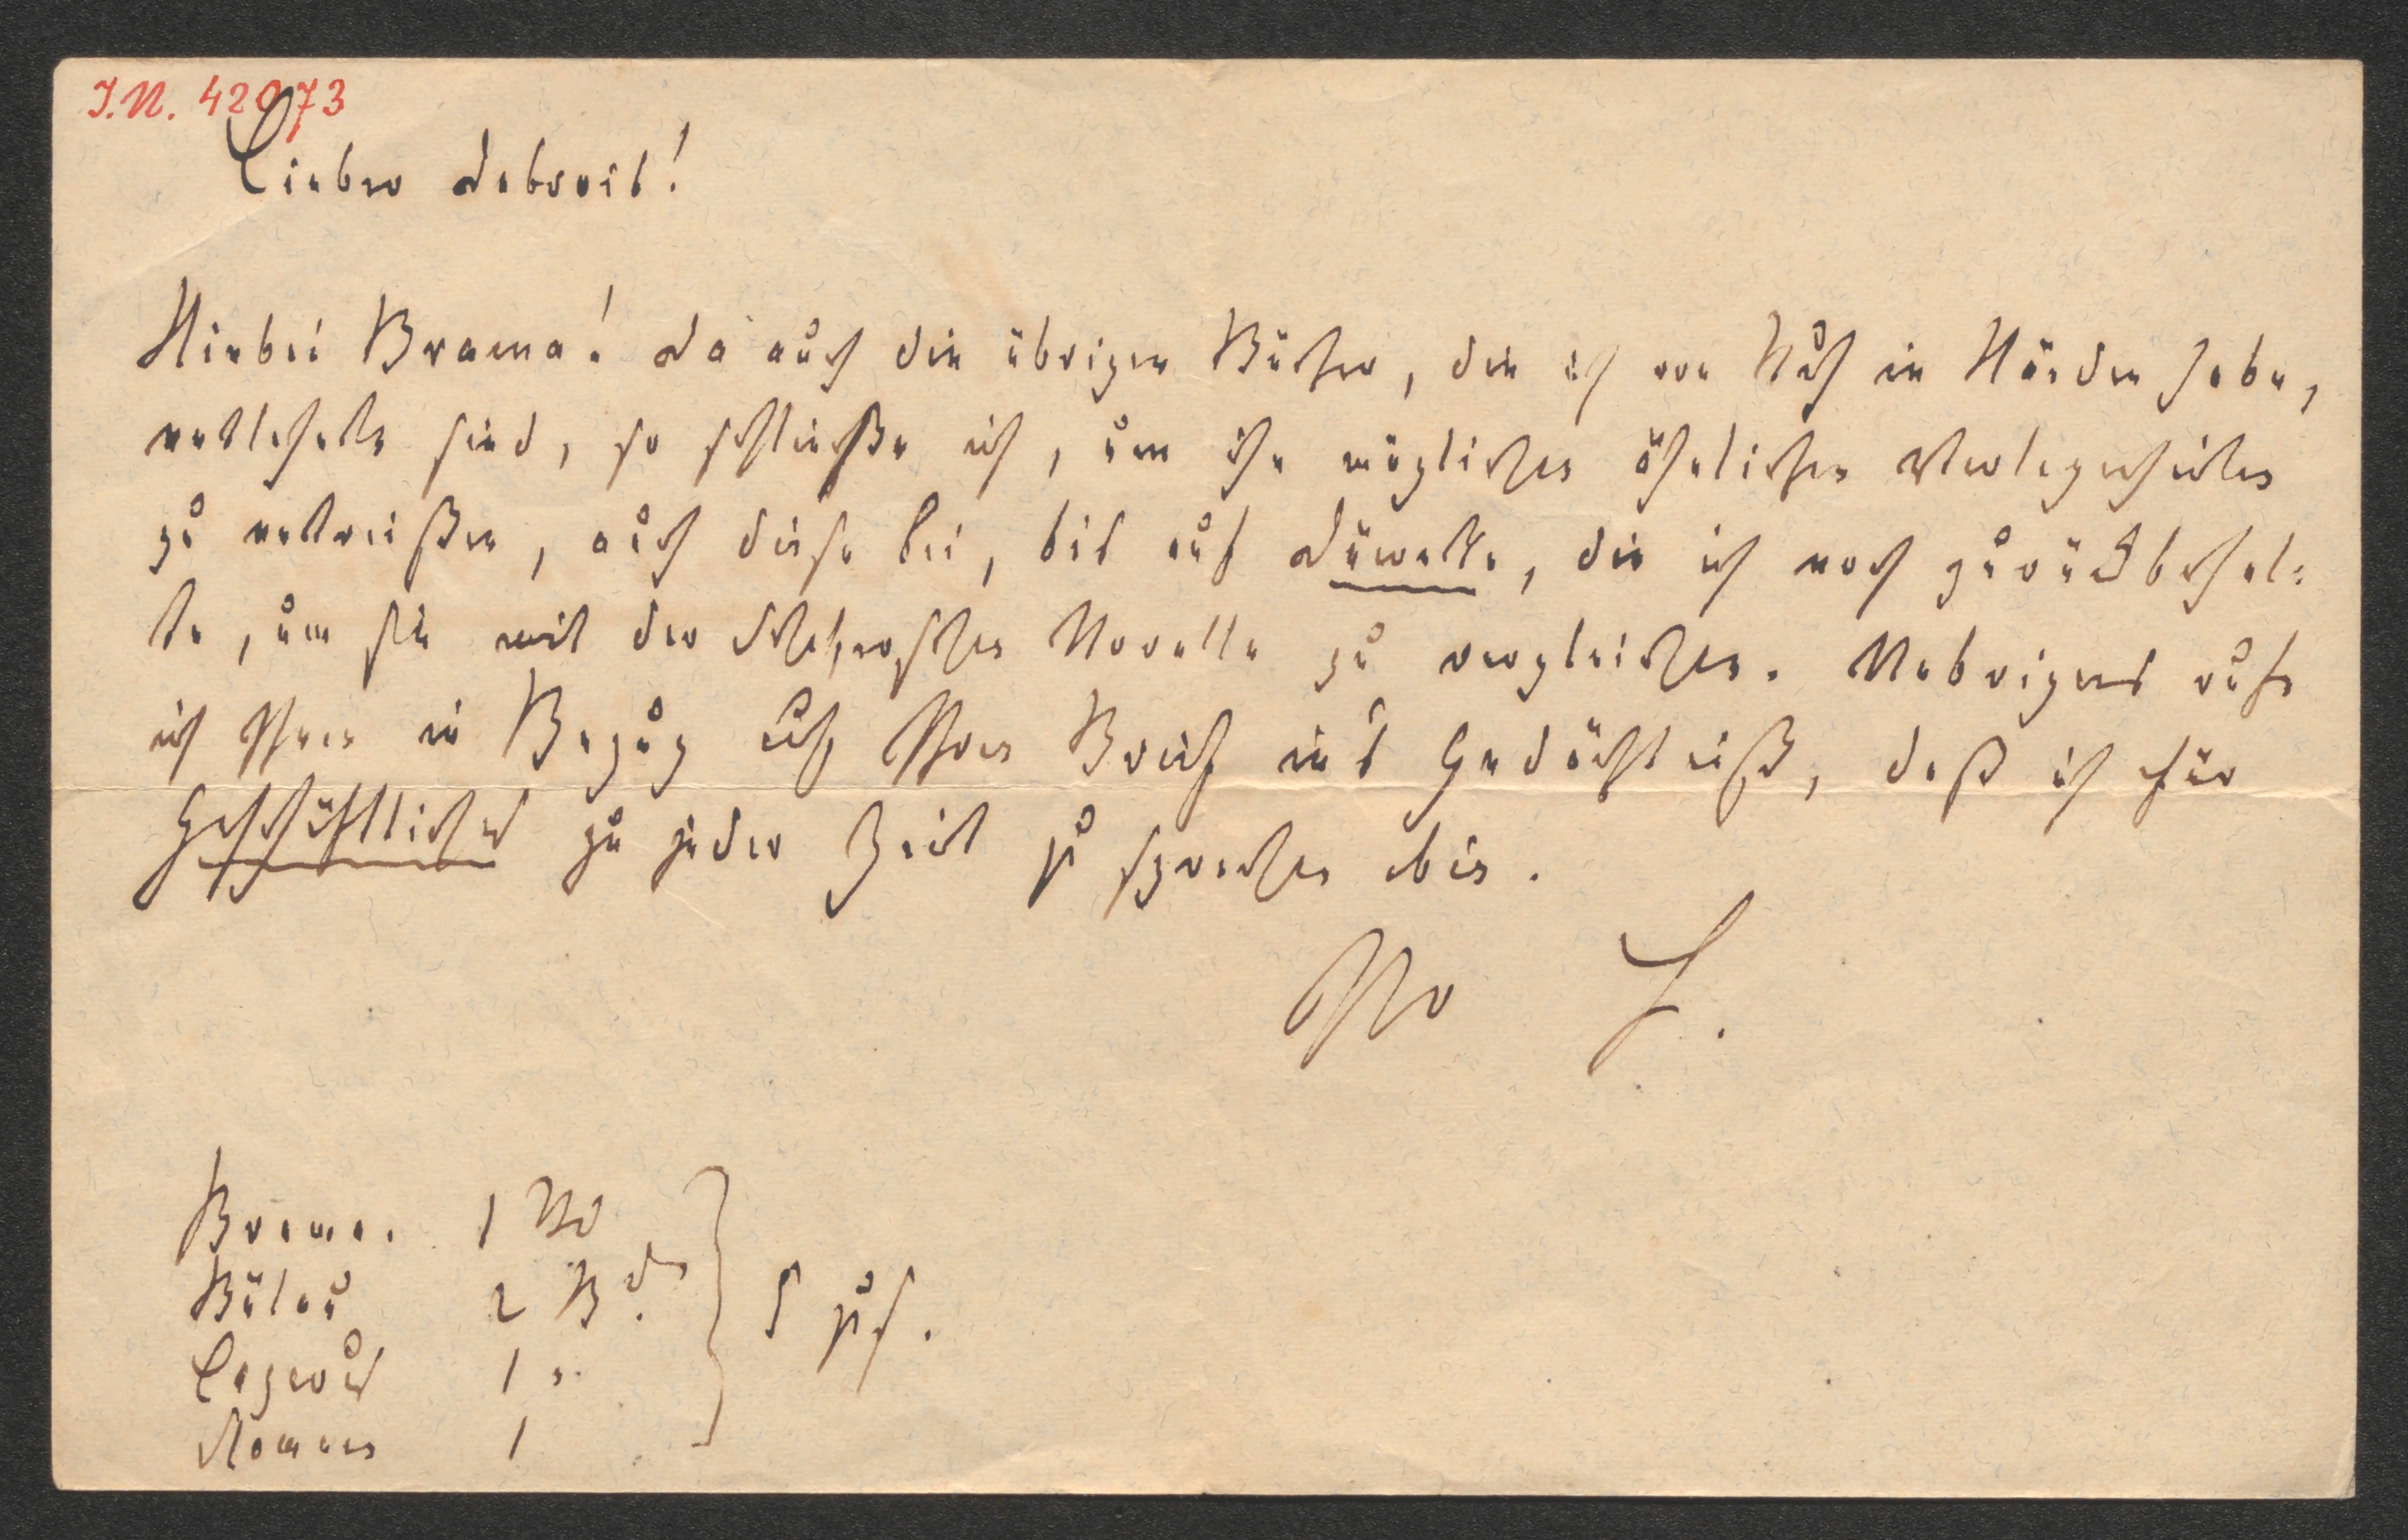 I.N. 42073
Lieber Debrois!
Hiebei Brama! Da auch die übrigen Bücher, die ich von Euch in Händen habe,
entlehnte sind, so schließe ich, um ihn möglichen ähnlichen Verlegenheiten
zu entreißen, auch diese bei, bis auf die, die ich noch zurückbehal-
te, um sie mit der Novelle zu vergleichen. Uebrigens rufe
ich Ihnen in Bezug auf Ihren Brief in's Gedächtniß, daß ich für
Geschäftliches zu jeder Zeit zu sprechen bin.
Ihr F.
Brama. 1
Bülau 2 Bde } 5 zus.
1 "
1